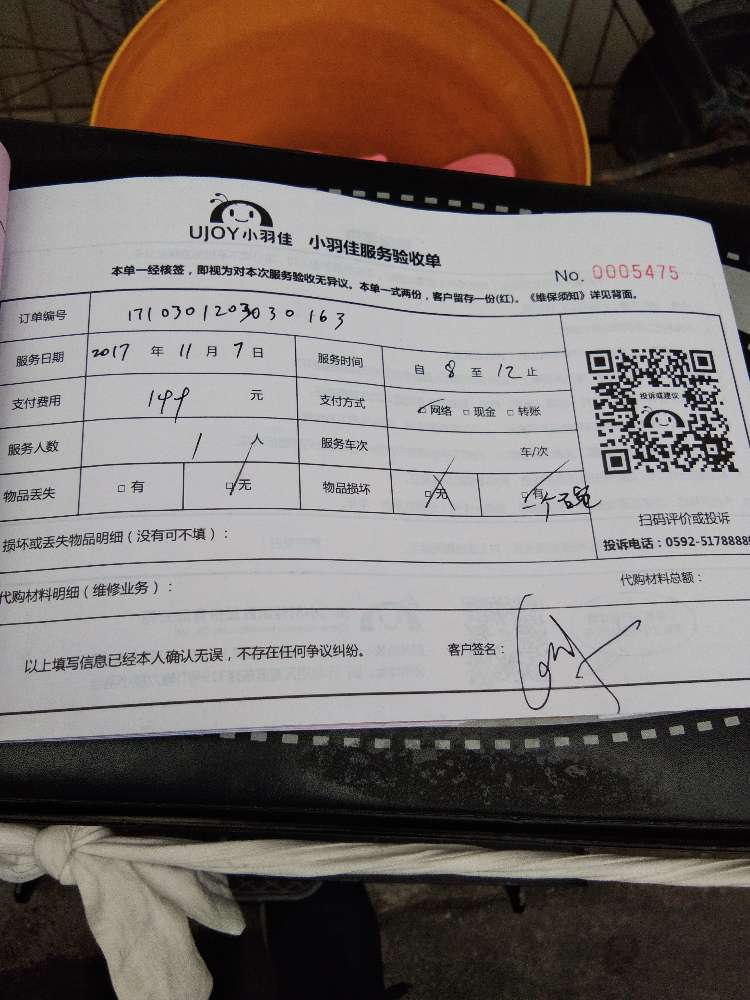 UJOY小羽佳 小羽佳服务验收单
本单一经核签，即视为对本次服务验收无异议。本单一式两份，客户留存一份(红)。《维保须知》详见背面。
No. 0005475
订单编号 1710301203030163
服务日期 2017 年 11 月 7 日 服务时间 自 8 至 12 止
支付费用 149 元 支付方式 □网络 □现金 □转账
服务人数 1 人 服务车次 车/次
物品丢失 □有 □无 物品损坏 □无 □有
一个
投诉或建议
扫码评价或投诉
投诉电话：0592-5178888
损坏或丢失物品明细（没有可不填）：
代购材料明细（维修业务）： 代购材料总额：
以上填写信息已经本人确认无误，不存在任何争议纠纷。 客户签名：